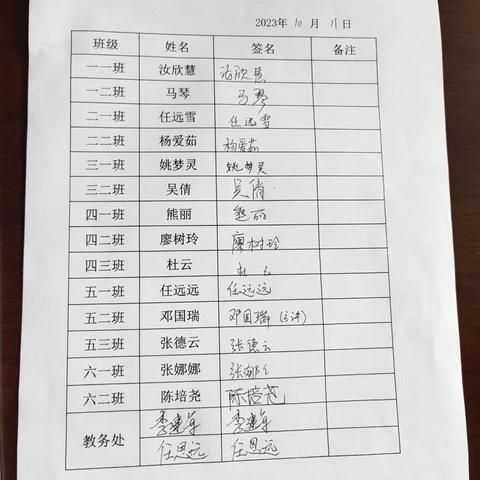 2023年 10 月 11 日
班级 姓名 签名 备注
一一班 汝欣慧 汝欣慧
一二班 马琴 马琴
二一班 任远雪 任远雪
二二班 杨爱茹 杨爱茹
三一班 姚梦灵 姚梦灵
三二班 吴倩 吴倩
四一班 熊丽 熊丽
四二班 廖树玲 廖树玲
四三班 杜云 杜云
五一班 任远远 任远远
五二班 邓国瑞 邓国瑞(主讲)
五三班 张德云 张德云
六一班 张娜娜 张娜
六二班 陈培尧 陈培尧
教务处 李建军 李建军
任恩远 任恩远